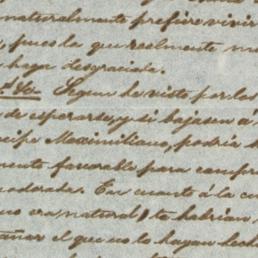 naturalmente prefiere vivir
, pues la que realmente me
haya desgraciado.
Segun he visto por los
de esperarse, y si bajasen á
cipe Maximiliano, podria s
mente favorable para compr
adorada. En cuanto á la cu
mo era natural, te habrian,
añar el que no lo hayan hech